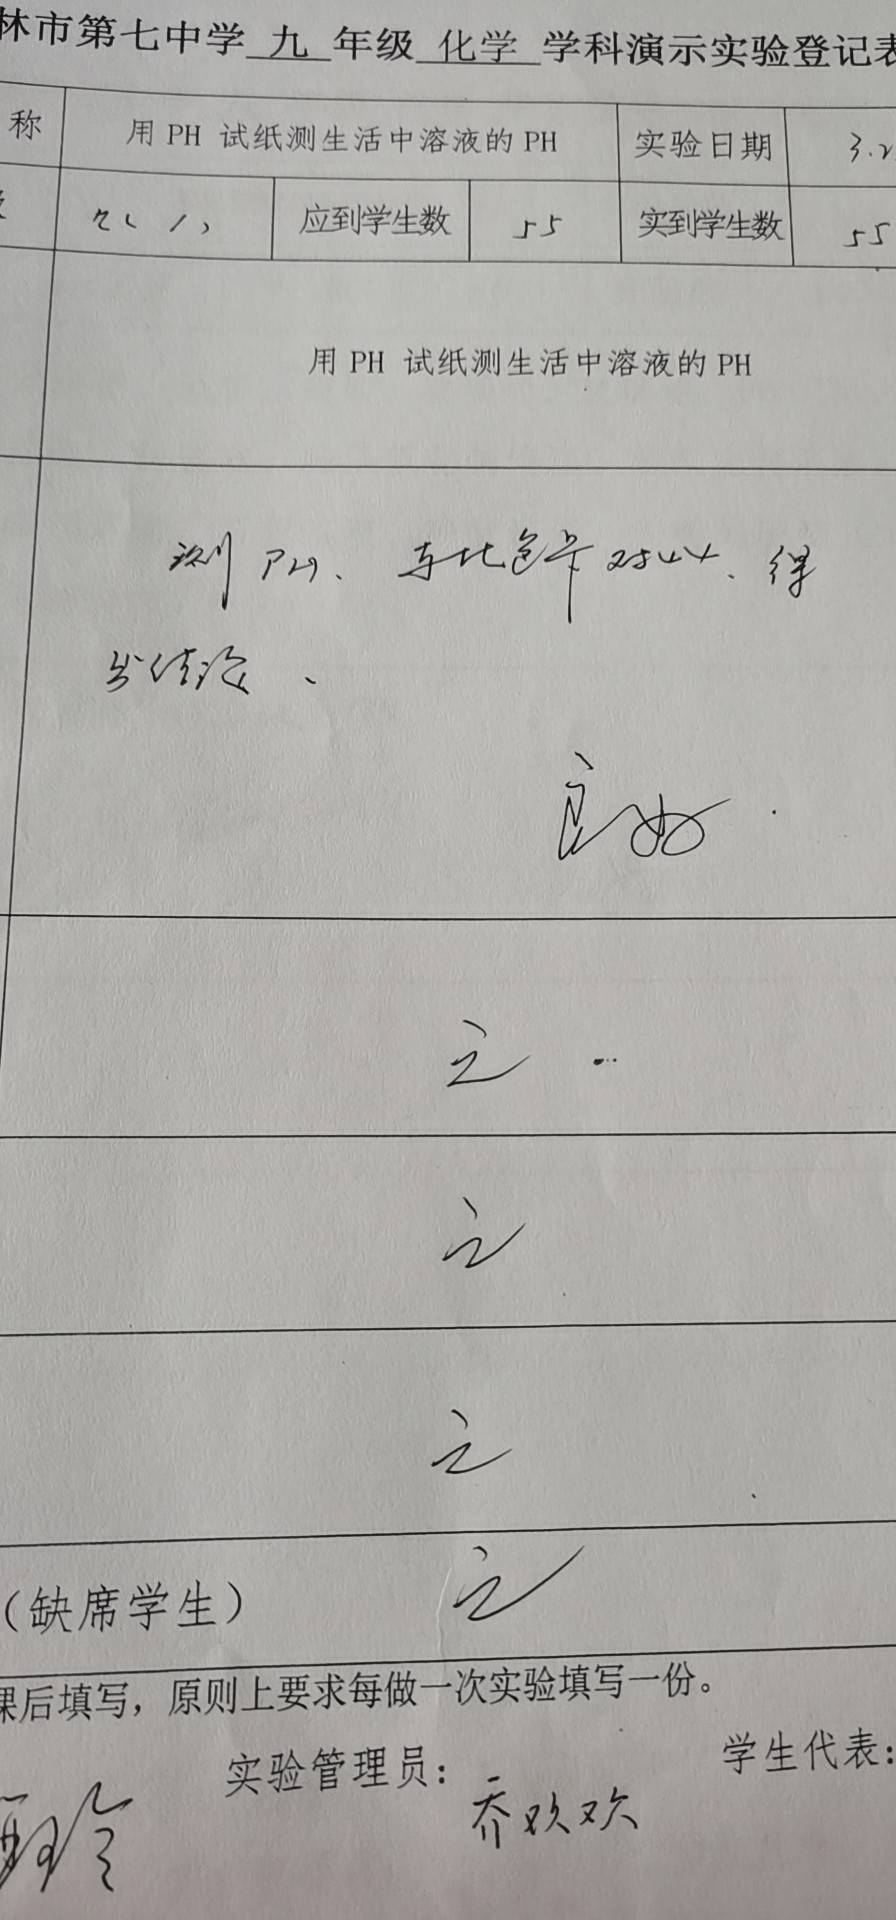 林市第七中学 九 年级 化学 学科演示实验登记表
称 用 PH 试纸测生活中溶液的 PH 实验日期 3.2
应到学生数 55 实到学生数 55
用 PH 试纸测生活中溶液的 PH
测 PH、与比色卡对比、得
出结论、
良好.
无
无
无
(缺席学生) 无
课后填写，原则上要求每做一次实验填写一份。
实验管理员: 乔欢欢 学生代表: